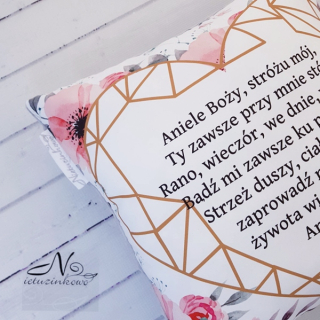 Aniele Boży, stróżu mój,
Ty zawsze przy mnie
Rano, wieczór, we dnie,
Bądź mi zawsze ku
Strzeż duszy,
zaprowadź
żywota
Nietuzinkowo